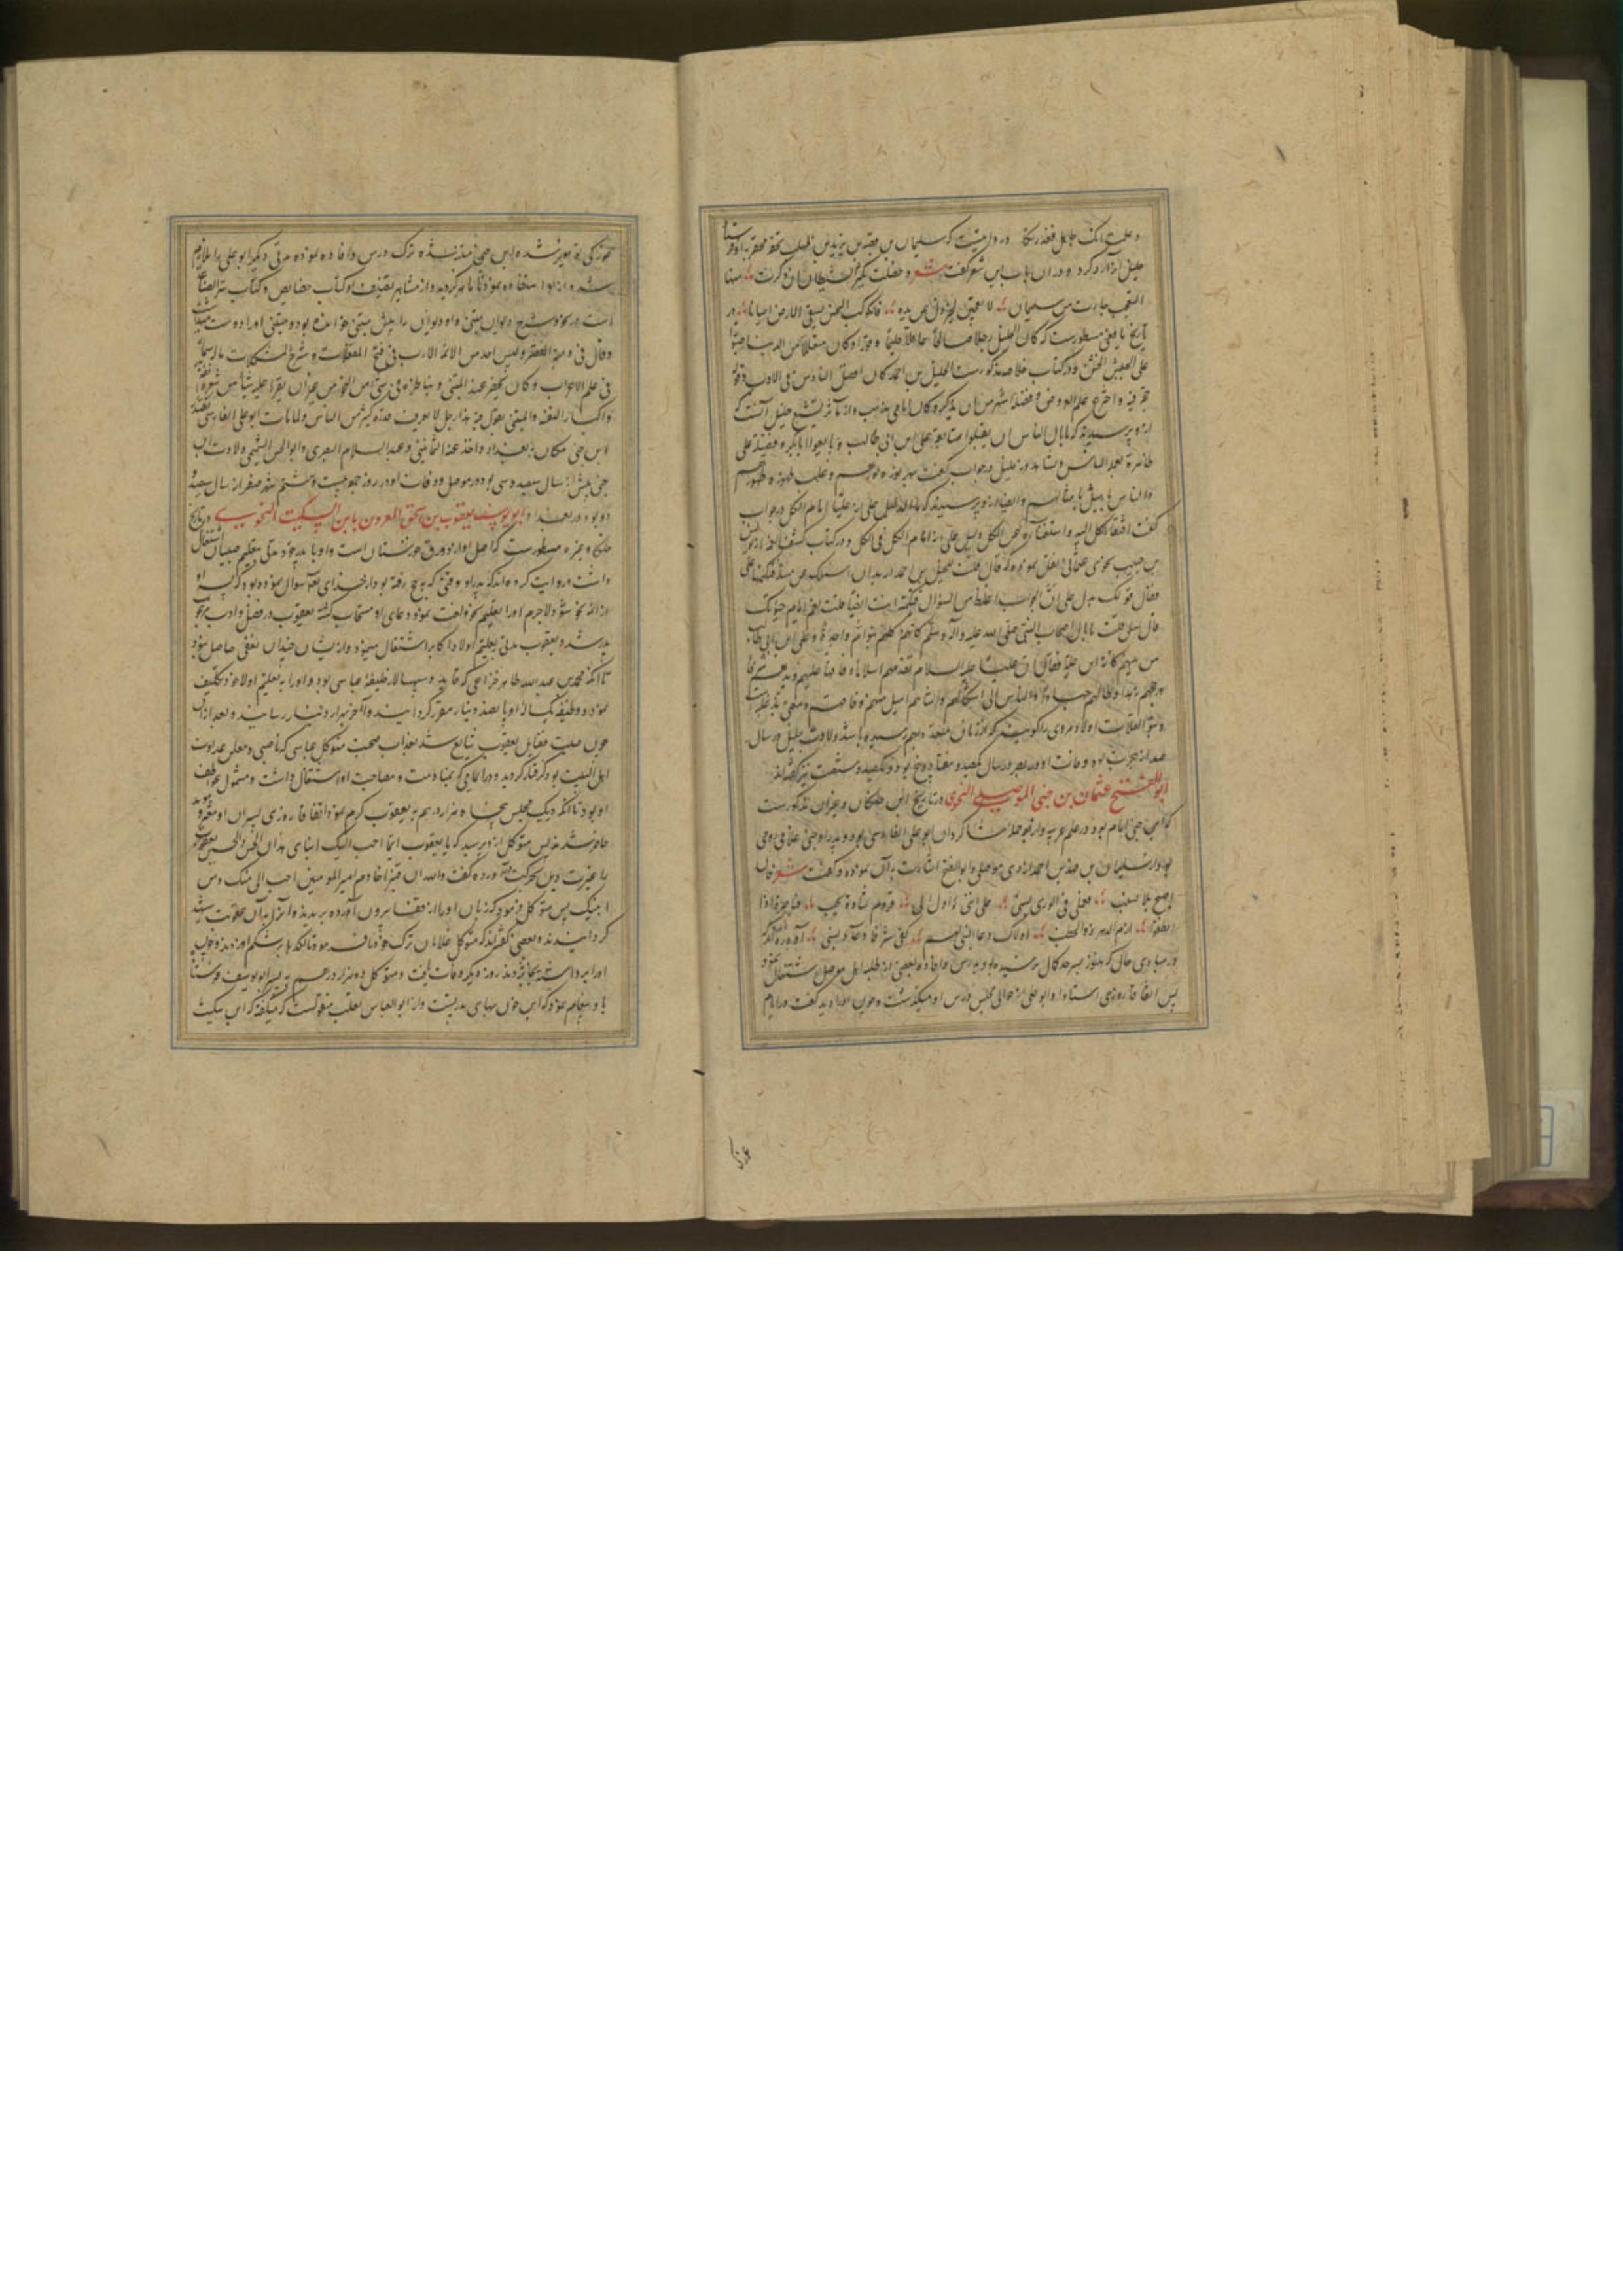 و علمت انک جاهل فعذرتکا و مرویست که سلیمان بن یزید بن المهلب تحفه محقر به او فرستاد
خلیل آنرا رد کرد و در آن باب این شعر گفت شعر و خصلت یکثر الشیطان ان ذکرت منها
التعجب جاءت من سلیمان لا تعجبن لخیر زل عن یده فالکوکب النحس یسقی الارض احیانا و در
تاریخ یافعی مسطورست که کان الخلیل رجلا صالحا عاقلا حلیما وقورا و کان متقللا من الدنیا صبورا
علی العیش الخشن و در کتاب خلاصه مذکورست الخلیل بن احمد کان افضل الناس فی الادب و قوله
حجة فیه و اخترع علم العروض و فضله اشهر من ان یذکر و کان امامی مذهب و از مآثر تشیع خلیل آنست که
ازو پرسیدند که ما بال الناس لم یقبلوا متابعة علی بن ابی طالب و بایعوا ابا بکر و فضیلة علی
ظاهرة بعید الناس و خلیل در جواب گفت بهر نوره نورهم و غلب ظهوره ظهورهم
و الناس الی امثالهم و ایضا ازو پرسیدند که ما الدلیل علی ان علیا امام الکل در جواب
گفت افتقار الکل الیه و استغناؤه عن الکل دلیل علی انه امام الکل فی الکل و در کتاب کشف الغمه از یونس
بن حبیب نحوی عثمانی نقل نموده که قال قلت للخلیل بن احمد ارید ان اسئلک عن مسئلة فتکتمها علی
فقال قولک یدل علی ان الجواب اغلظ من السؤال فتکتمه انت ایضا قلت نعم ایام حیوتک
قال سل قلت ما بال اصحاب النبی صلی الله علیه و آله و سلم کانهم کلهم بنو ام واحدة و علی بن ابی طالب
من بینهم کانه ابن علة فقال ان علیا علیه السلام تقدمهم اسلاما و فاقهم علما و بذهم شرفا
و رجحهم زهدا و طالهم جهادا و الناس الی اشکالهم و اشباههم امیل منهم
ولادت خلیل در سال
صد از هجرت بوده و فات او در بصره در سال یکصد و هفتاد و پنج بود و یکصد و شصت نیز گفته‌اند
ابوالفتح عثمان بن جنی الموصلی النحوی در تاریخ ابن خلکان و غیر آن مذکورست
که ابن جنی امام بود در علم عربیه و از جمله شاگردان ابو علی الفارسی بود و پدر او جنی غلامی رومی
بود از سلیمان بن فهد بن احمد ازدی موصلی و ابو الفتح اشارت به آن نموده و گفت شعر فان
اصبح بلا نسب فعلمی فی الوری نسبی علی انی اؤول الی قروم سادة نجب قیاصرة اذا
نطقوا ارم الدهر ذو الخطب اولاک دعا النبی لهم کفی شرفا دعاء نبی آورده‌اند که
در مبادی حال که هنوز بسرحد کمال نرسیده بود بدرس و افاده بعضی از طلبه اهل موصل اشتغال نمود
پس اتفاقا روزی استاد او ابو علی از حوالی مجلس درس او میگذشت و چون او را دید گفت در ایام
غوزگی
غوزگی تو مویز شده ابن جنی متنبه شده ترک درس و افاده نموده مدتی دیگر ابو علی را ملازم
شده و از او استفاده نمود تا ماهر گردید و از مشاهیر تصنیف او کتاب خصایص و کتاب سر الصناعة
است و شرح دیوان متنبی و او دیوان را پیش متنبی خوانده بود و متنبی او را دوست
و قال فی دمیة القصر و لیس لاحد من الائمة الادب فی فتح المقفلات و شرح المشکلات ما له سیما
فی علم الاعراب و کان یحضر عند المتنبی و یناظره فی شیء من النحو من غیر ان یقرأ علیه شیئا من شعره انفة
و اکبارا لنفسه و المتنبی یقول فیه هذا رجل لا یعرف قدره کثیر من الناس و لما مات ابو علی الفارسی تصدر
ابن جنی مکانه ببغداد و اخذ عنه الثمانینی و عبد السلام البصری و ابو الحسن السمسمی ولادت ابن
جنی پیش از سال سیصد و سی بود در موصل و وفات او در روز جمعه بیست و هشتم صفر از سال سیصد و
دو بود در بغداد ابو یوسف یعقوب بن اسحق المعروف بابن السکیت النحوی در تاریخ
خلکان و غیره مسطورست که اصل او از دورق خوزستان است و او با پدر خود مدتی بتعلیم صبیان اشتغال
داشت و روایت کرده‌اند که پدر او وقتی که بحج رفته بود از خدای تعالی سؤال نموده بود که پسر او
از ائمه نحو شود لاجرم او را تعلیم نحو و لغت نمود و دعای او مستجاب گشته یعقوب در فضل و ادب
پدر شد و یعقوب مدتی بتعلیم اولاد اکابر اشتغال مینمود و از ایشان چندان نفعی حاصل نبود
تا آنکه محمد بن عبد الله طاهر خزاعی که قاید و سپهسالار خلیفه عباسی بود او را به تعلیم اولاد خود تکلیف
نمود و وظیفه او پانصد دینار مقرر گردانیده و آخر بهزار دینار رسانید و بعد از آن
چون صیت فضایل یعقوب شایع شد بعذاب صحبت متوکل عباسی که ناصبی و معلن عداوت
اهل البیت بود گرفتار گردید و در ایامی که بمنادمت و مصاحبت او اشتغال داشت و مشمول عواطف
او بود تا آنکه در یک مجلس پنجاه هزار درهم به یعقوب کرم نمود اتفاقا روزی پسران او معتز و مؤید
حاضر شدند پس متوکل ازو پرسید که یا یعقوب ایما احب الیک ابنای هذان ام الحسن و الحسین یعقوب
را غیرت دین بحرکت آورده گفت والله ان قنبرا خادم امیر المومنین احب الی منک و من
ابنیک پس متوکل فرمود که زبان او را از قفا بیرون آورده بریدند و او را به آن عقوبت شهید
گردانیدند و بعضی گفته‌اند که متوکل غلامان ترک خود را فرمود تا لگد بر شکم او زدند و چون
او را برداشته بخانه بردند روز دیگر وفات یافت و متوکل ده هزار درهم به پسر ابو یوسف فرستاد
و پیغام نمود که این خون بهای پدر تست و از ابو العباس ثعلب منقولست که میگفته که ابن سکیت